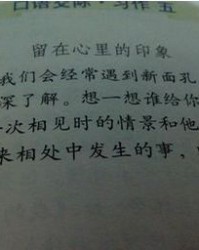 口语交际·习作 五
留在心里的印象
我们会经常遇到新面孔
深了解。想一想谁给你
次相见时的情景和他
来相处中发生的事，